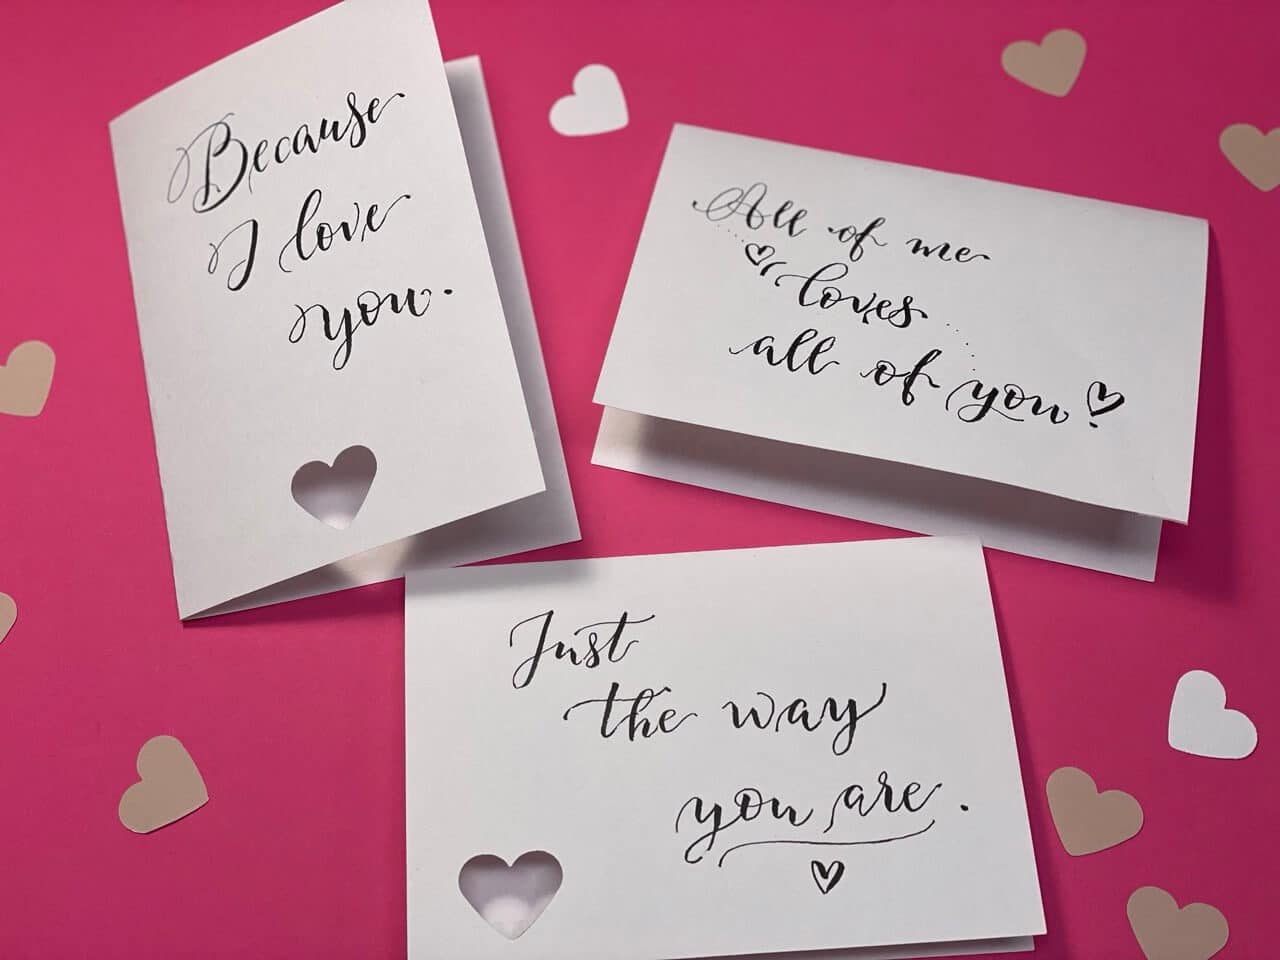 Because
I love
you.
All of me
loves
all of you!
Just
the way
you are.